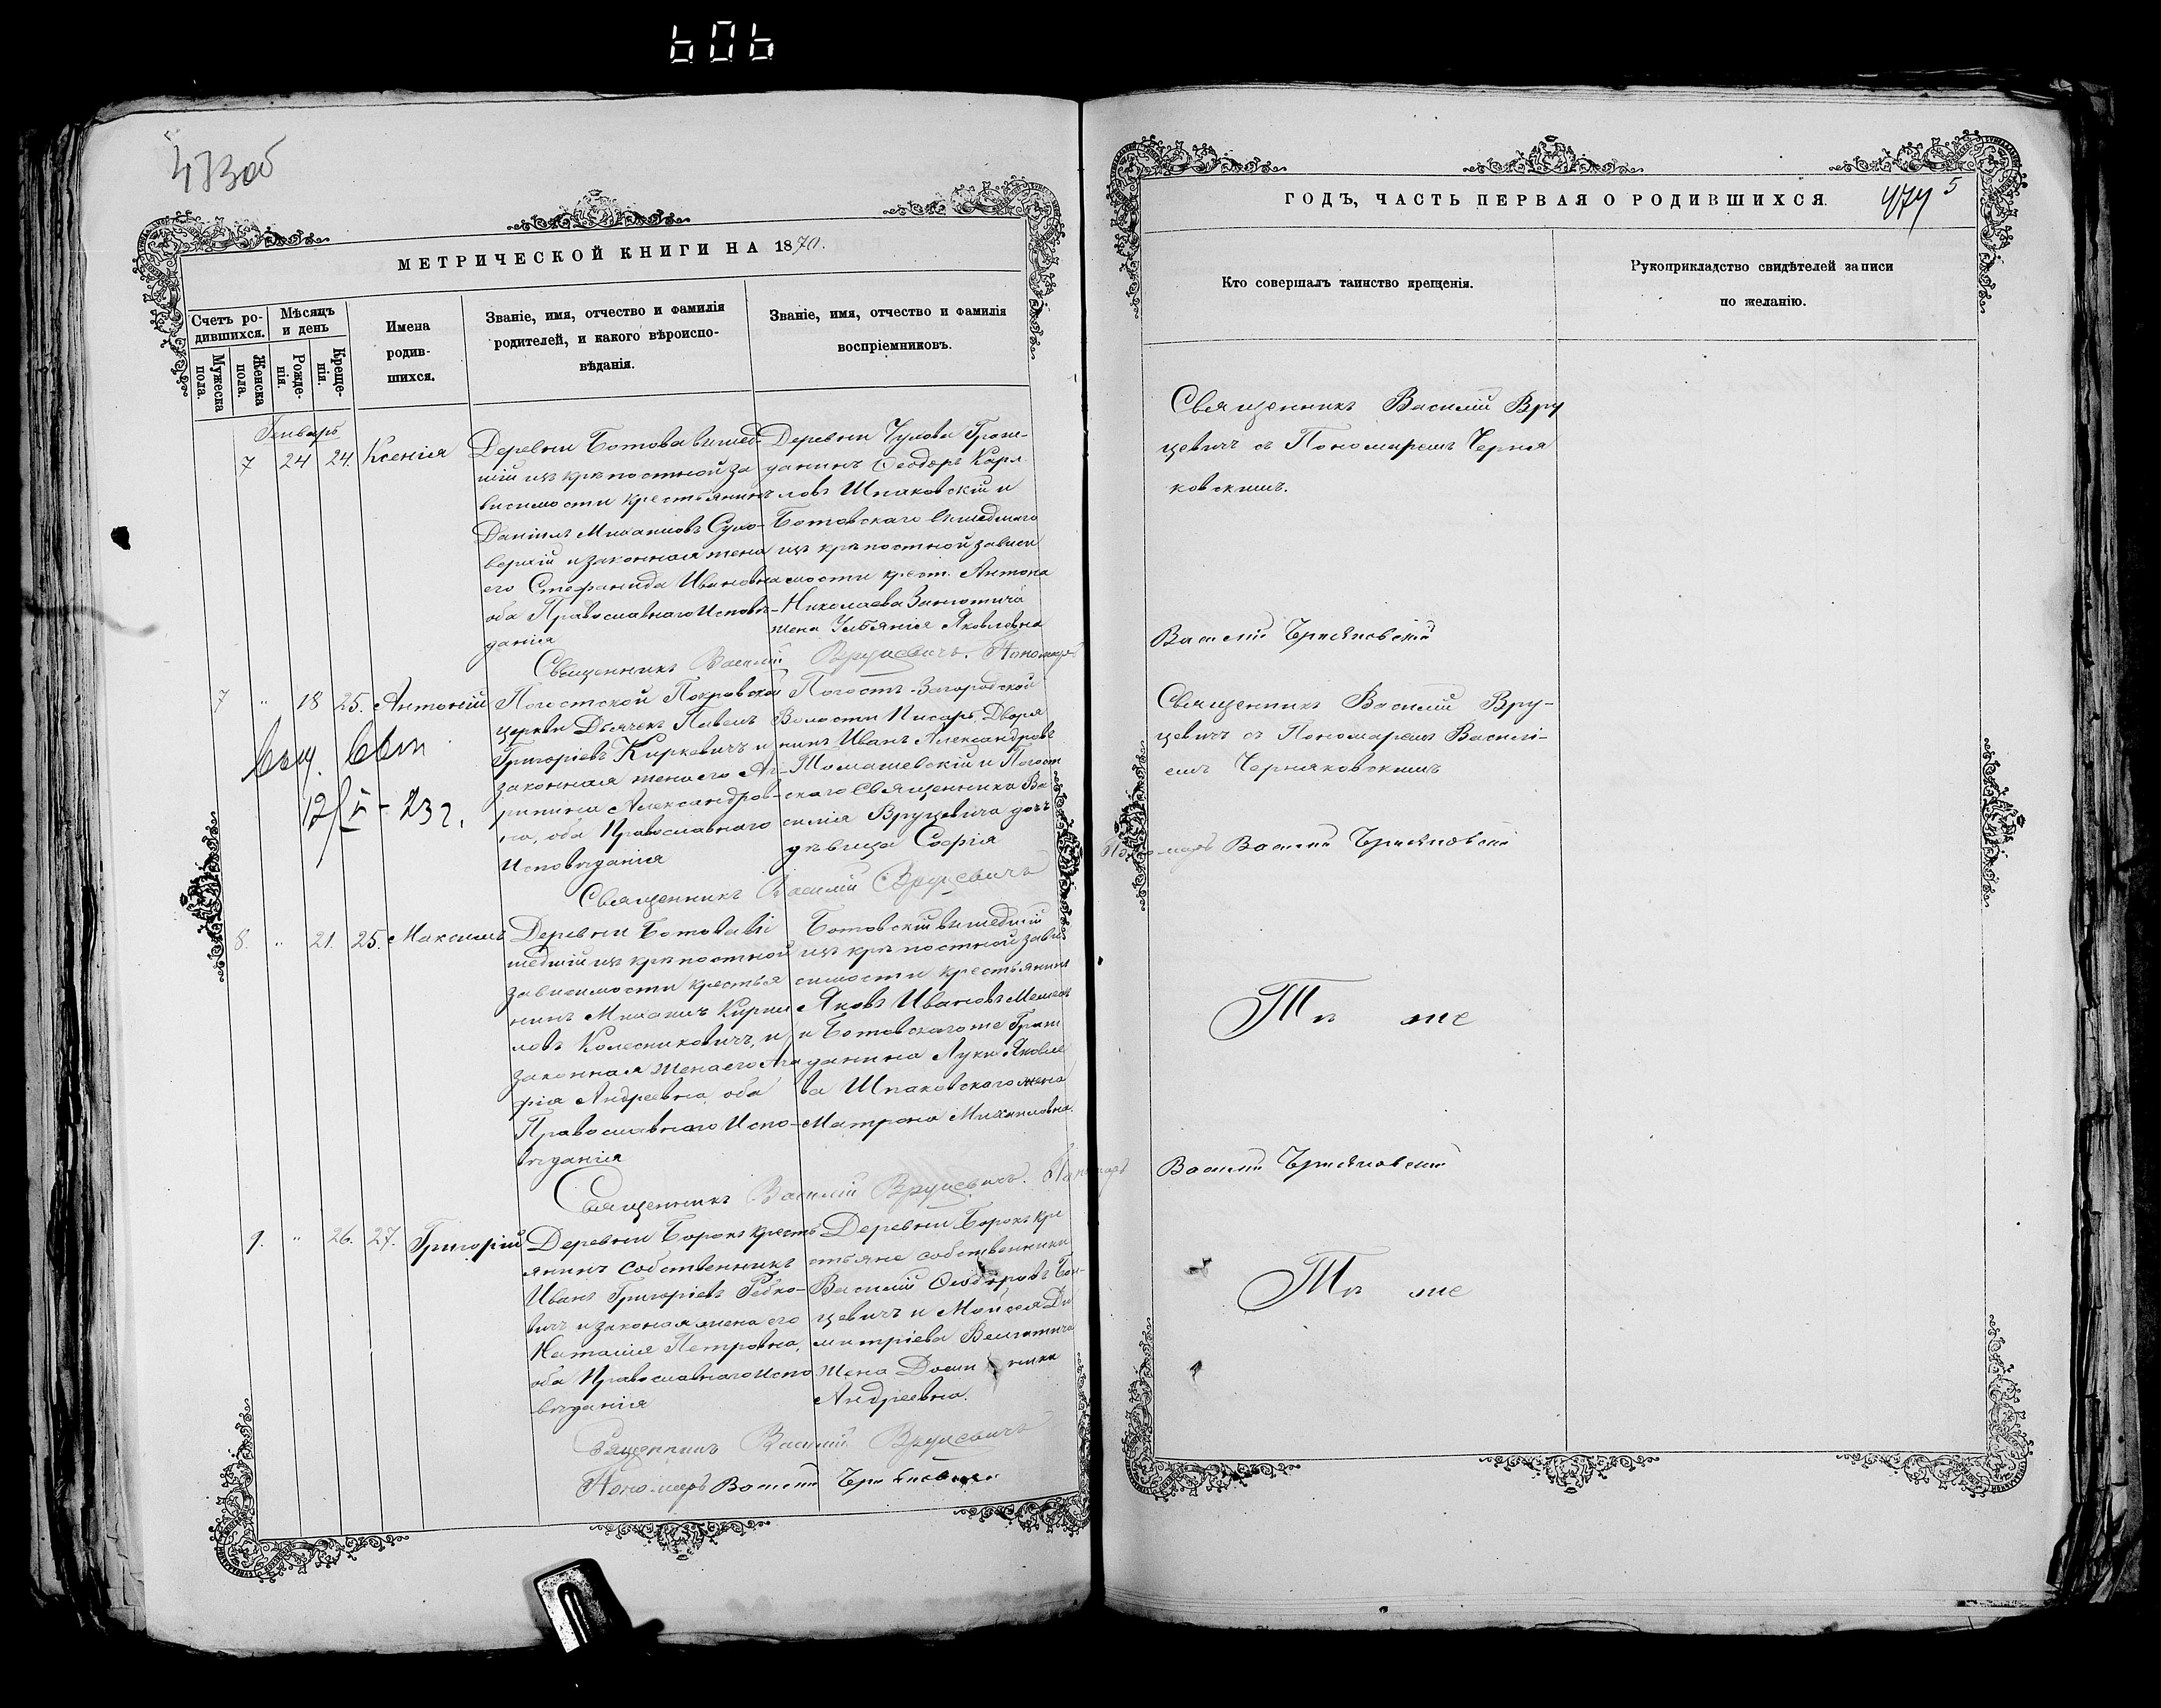 606
473об
МЕТРИЧЕСКОЙ КНИГИ НА 1870.
Счетъ ро-
дившихся.
Мужеска
пола.
Женска
пола.
Мѣсяцъ
и день
Рожде-
нія.
Креще-
нія.
Имена
родив-
шихся.
Званіе, имя, отчество и фамилія
родителей, и какого вѣроиспо-
вѣданія.
Званіе, имя, отчество и фамилія
воспріемниковъ.
Генварь
7 24 24. Ксенія
Деревни Ботова вышед-
шій изъ крѣпостной за
висимости крестьянинъ
Даніилъ Михаиловъ Сухо-
верхій и законная жена
его Стефанида Ивановна
оба Православнаго Исповѣ-
данія
Деревни Чулова Граж-
данинъ Ѳеодоръ Карп
ловъ Шпаковскій и
Ботовскаго вышедшаго
изъ крѣпостной зависи
мости крест. Антона
Николаева
жена Яковлевна
Священникъ Василій Вруцевичъ. Пономарь
7 " 18 25. Антоній
Погостской Покровской
церкви Дьячекъ Павелъ
Григоріевъ Киркевичъ и
законная жена его Аг-
рипина Александров-
на, оба Православнаго
Исповѣданія
Погостъ-Загородской
Волости Писарь, Дворя
нинъ Иванъ Александровъ
Томашевскій и Погост
скаго Священника Ва
силія Вруцевича дочь
дѣвица Софія
выд. свт
12/V - 23 г.
Священникъ Василій Вруцевичъ
8. " 21. 25. Максимъ
Деревни Ботова вы
шедшій изъ крѣпостной
зависимости крестья
нинъ Михаилъ Кирил
ловъ Колесниковичъ, и
законная жена его Ага
фія Андреевна, оба
Православнаго Испо-
вѣданія
Ботовскій вышедшій
изъ крѣпостной зави
симости крестьянинъ
Яковъ Ивановъ
и Ботовскаго же Граж
данина Луки Яковле
ва Шпаковскаго жена
Матрона Михаиловна.
Священникъ Василій Вруцевичъ. Пономарь
9. " 26. 27. Григорій
Деревни Борокъ кресть
янинъ собственникъ
Иванъ Григоріевъ Рабко-
вичъ и законная жена его
Наталія Петровна,
оба Православнаго Испо
вѣданія
Деревни Борокъ кре
стьяне собственники
Василій Ѳеодоровъ
цевичъ и Моисея Ди
митріева
жена
Андреевна.
Священникъ Василій Вруцевичъ
Пономарь Василій Черняковскій
ГОДЪ, ЧАСТЬ ПЕРВАЯ О РОДИВШИХСЯ.
474 5
Кто совершалъ таинство крещенія.
Рукоприкладство свидѣтелей записи
по желанію.
Священникъ Василій Вру
цевичъ съ Пономаремъ Черня
ковскимъ.
Василій Черняковскій
Священникъ Василій Вру-
цевичъ съ Пономаремъ Василі-
емъ Черняковскимъ
Пономарь Василій Черняковскій
Тѣ же
Василій Черняковскій
Тѣ же